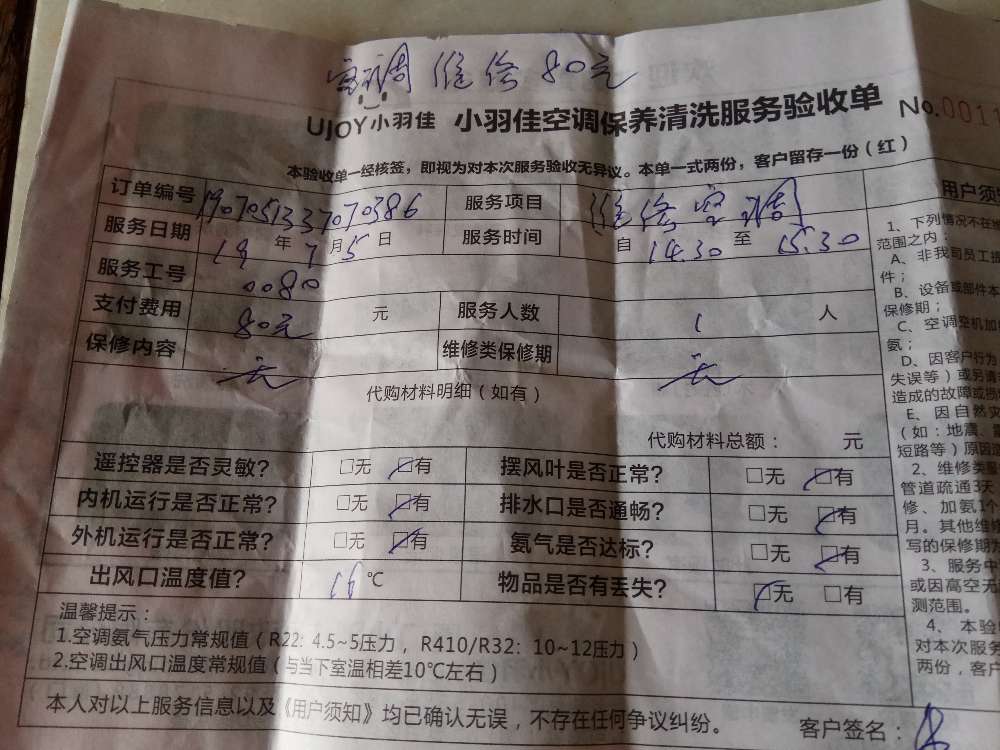 空调维修80元
UJOY小羽佳 小羽佳空调保养清洗服务验收单 No.001
本验收单一经核签，即视为对本次服务验收无异议。本单一式两份，客户留存一份（红）
订单编号 1907051337070386 服务项目 维修空调
服务日期 19年7月5日 服务时间 自14.30至15.30
服务工号 0080
支付费用 80元 元 服务人数 1 人
保修内容 无 维修类保修期 无
代购材料明细（如有）
代购材料总额： 元
遥控器是否灵敏? □无 ☑有 摆风叶是否正常? □无 ☑有
内机运行是否正常? □无 ☑有 排水口是否通畅? □无 ☑有
外机运行是否正常? □无 ☑有 氨气是否达标? □无 ☑有
出风口温度值? 16℃ 物品是否有丢失? ☑无 □有
温馨提示：
1.空调氨气压力常规值（R22: 4.5~5压力，R410/R32: 10~12压力）
2.空调出风口温度常规值（与当下室温相差10℃左右）
本人对以上服务信息以及《用户须知》均已确认无误，不存在任何争议纠纷。
客户签名：
用户须
1、下列情况不在
范围之内：
A、非我司员工
件；
B、设备或部件本
保修期；
C、空调空机加
氨；
D、因客户行为
失误等）或另请
造成的故障或
E、因自然灾
（如：地震、
短路等）原因
2、维修类
管道疏通3天、
修、加氨1个
月。其他维
写的保修期为
3、服务中
或因高空无
测范围。
4、本验
对本次服务
两份，客户